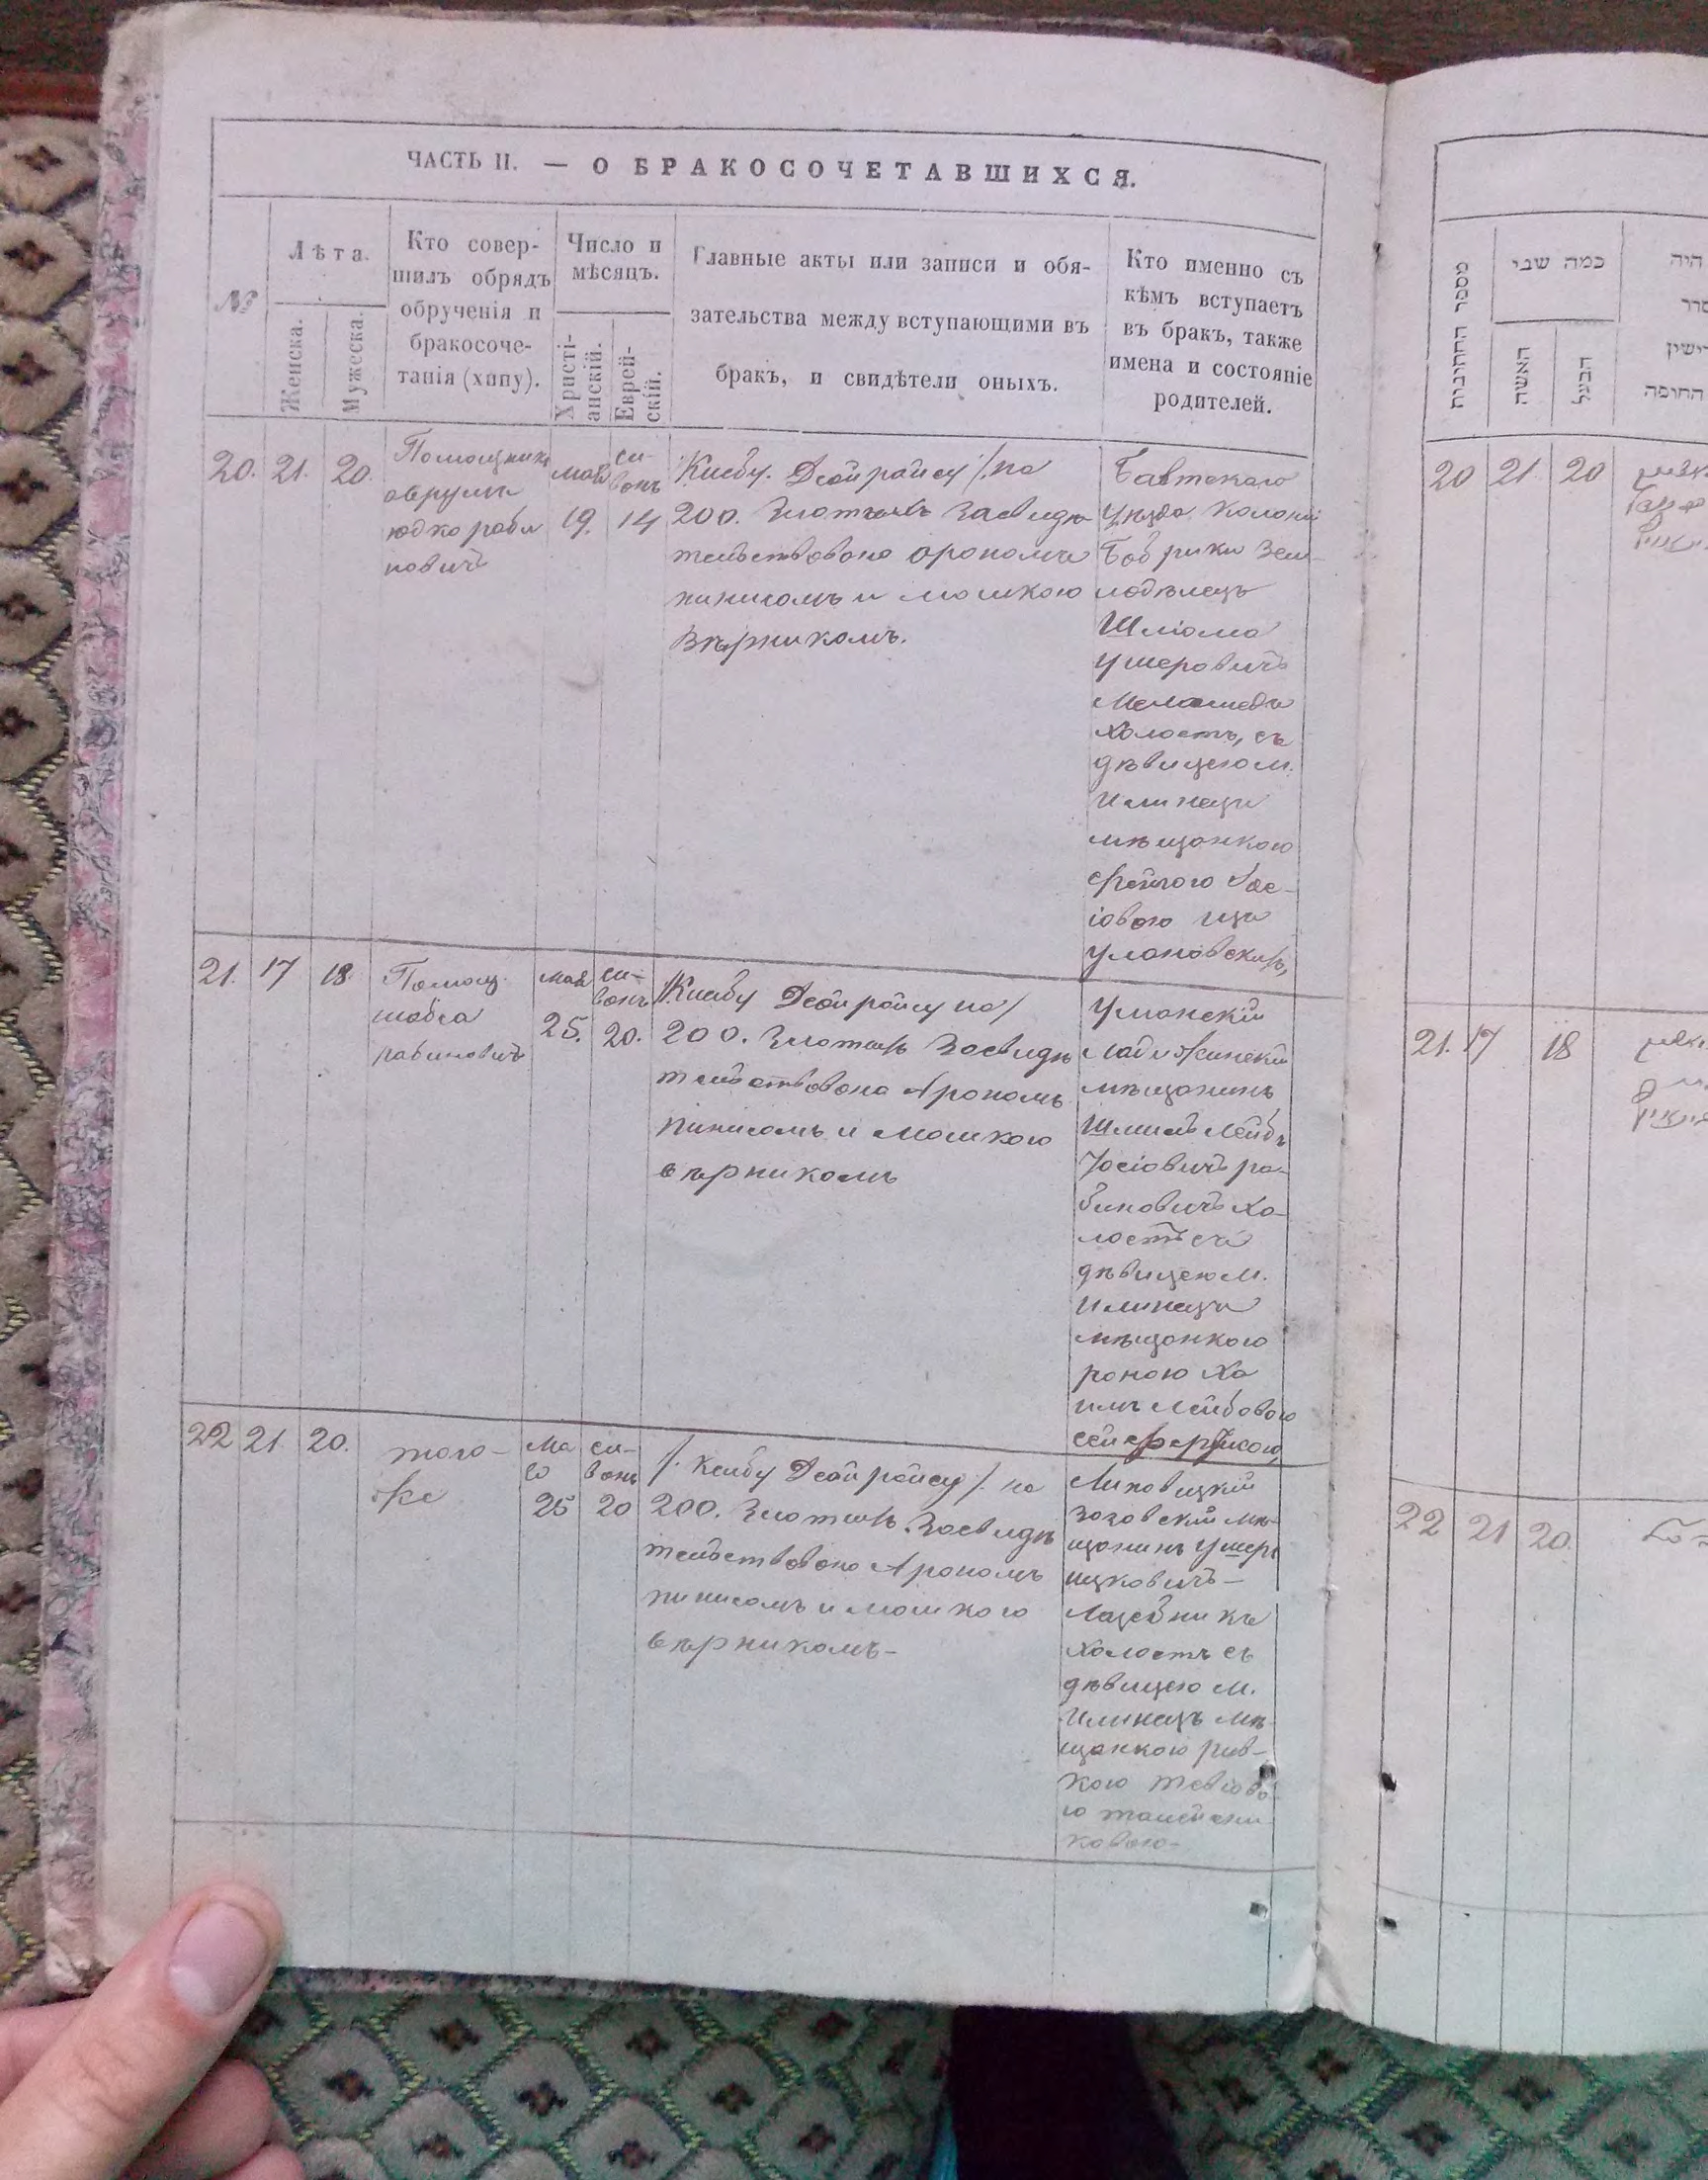 ЧАСТЬ II. — О БРАКОСОЧЕТАВШИХСЯ.
№
Лѣта.
Женска.
Мужеска.
Кто совер-
шилъ обрядъ
обрученія и
бракосоче-
танія (хипу).
Число и
мѣсяцъ.
Христі-
анскій.
Еврей-
скій.
Главные акты или записи и обя-
зательства между вступающими въ
бракъ, и свидѣтели оныхъ.
Кто именно съ
кѣмъ вступаетъ
въ бракъ, также
имена и состояніе
родителей.
20. 21. 20.
Помощникъ
аврумъ
юдко раби
новичъ
мая
19.
си-
вонъ
14
Ксибу. Деойрайсу /. на
200. Злотыхъ Засвидѣ
тельствовано арономъ
пинисомъ и мошкою
Вѣрникомъ.
Балтскаго
уѣзда Колоніи
Бобрики Зем-
лодѣлецъ
Шліома
Ушеровичъ
Меламедъ
Холостъ, съ
дѣвицею м.
Илинецъ
мѣщанкою
фейгою Іос-
іовою
улановскихъ,
21. 17 18.
Помощ.
шабса
рабиновичъ
мая
25.
си-
вонъ
20.
/Ксибу Деойрайсу на/
200. Злотыхъ Засвидѣ
тельствовано Арономъ
Пинисомъ и Мошкою
вѣрникомъ
Уманскій
мѣщанинъ
Шмиль Лейбъ
Іосіовичъ ра-
биновичъ хо-
лостъ съ
дѣвицею м.
Илинецъ
мѣщанкою
роною Ха
имъ Лейбовою
22 21 20.
того-
же
Ма
я
25
си-
вонъ
20
/. Ксибу Деойрайсу /. на
200. Злотыхъ. Засвидѣ
тельствовано Арономъ
пинисомъ и мошкою
вѣрникомъ-
Липовецкій
мѣ-
щанинъ Ушеръ
ицковичъ-
Лазебникъ
Холостъ съ
дѣвицею м.
Илинецъ мѣ
щанкою рив-
кою тевіово
ю
ковою-
מספר החתונות
כמה שני
האשה
הבעל
היה
החופה
20 21 20
21. 17 18
22 21 20.